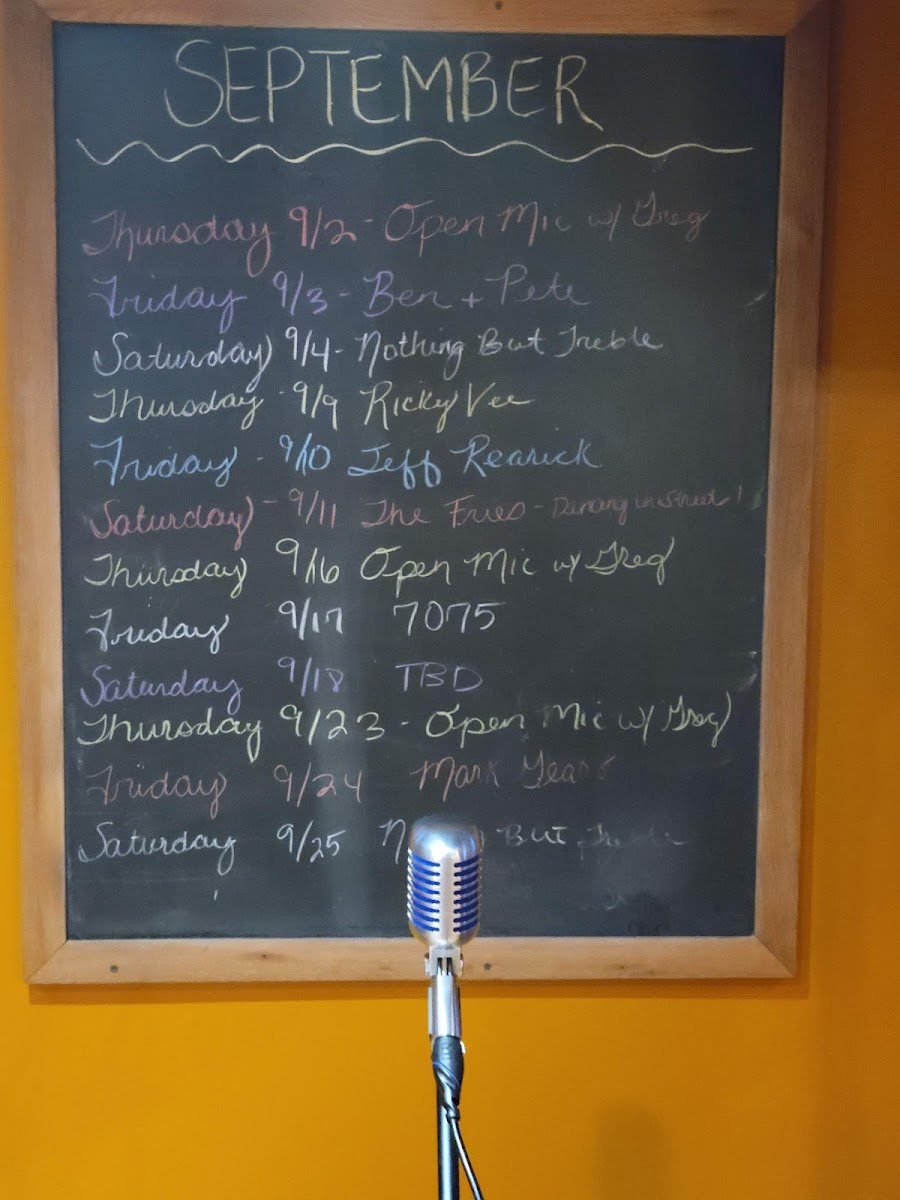 SEPTEMBER
Thursday 9/2 - Open Mic w/ Greg
Friday 9/3 - Ben + Pete
Saturday 9/4 - Nothing But Treble
Thursday - 9/9 Ricky Vee
Friday - 9/10 Jeff Rearick
Saturday - 9/11 The Fries - Dancing in Streets!
Thursday 9/16 Open Mic w/ Greg
Friday 9/17 7075
Saturday 9/18 TBD
Thursday 9/23 - Open Mic w/ Greg
Friday 9/24 Mark
Saturday 9/25 But Treble